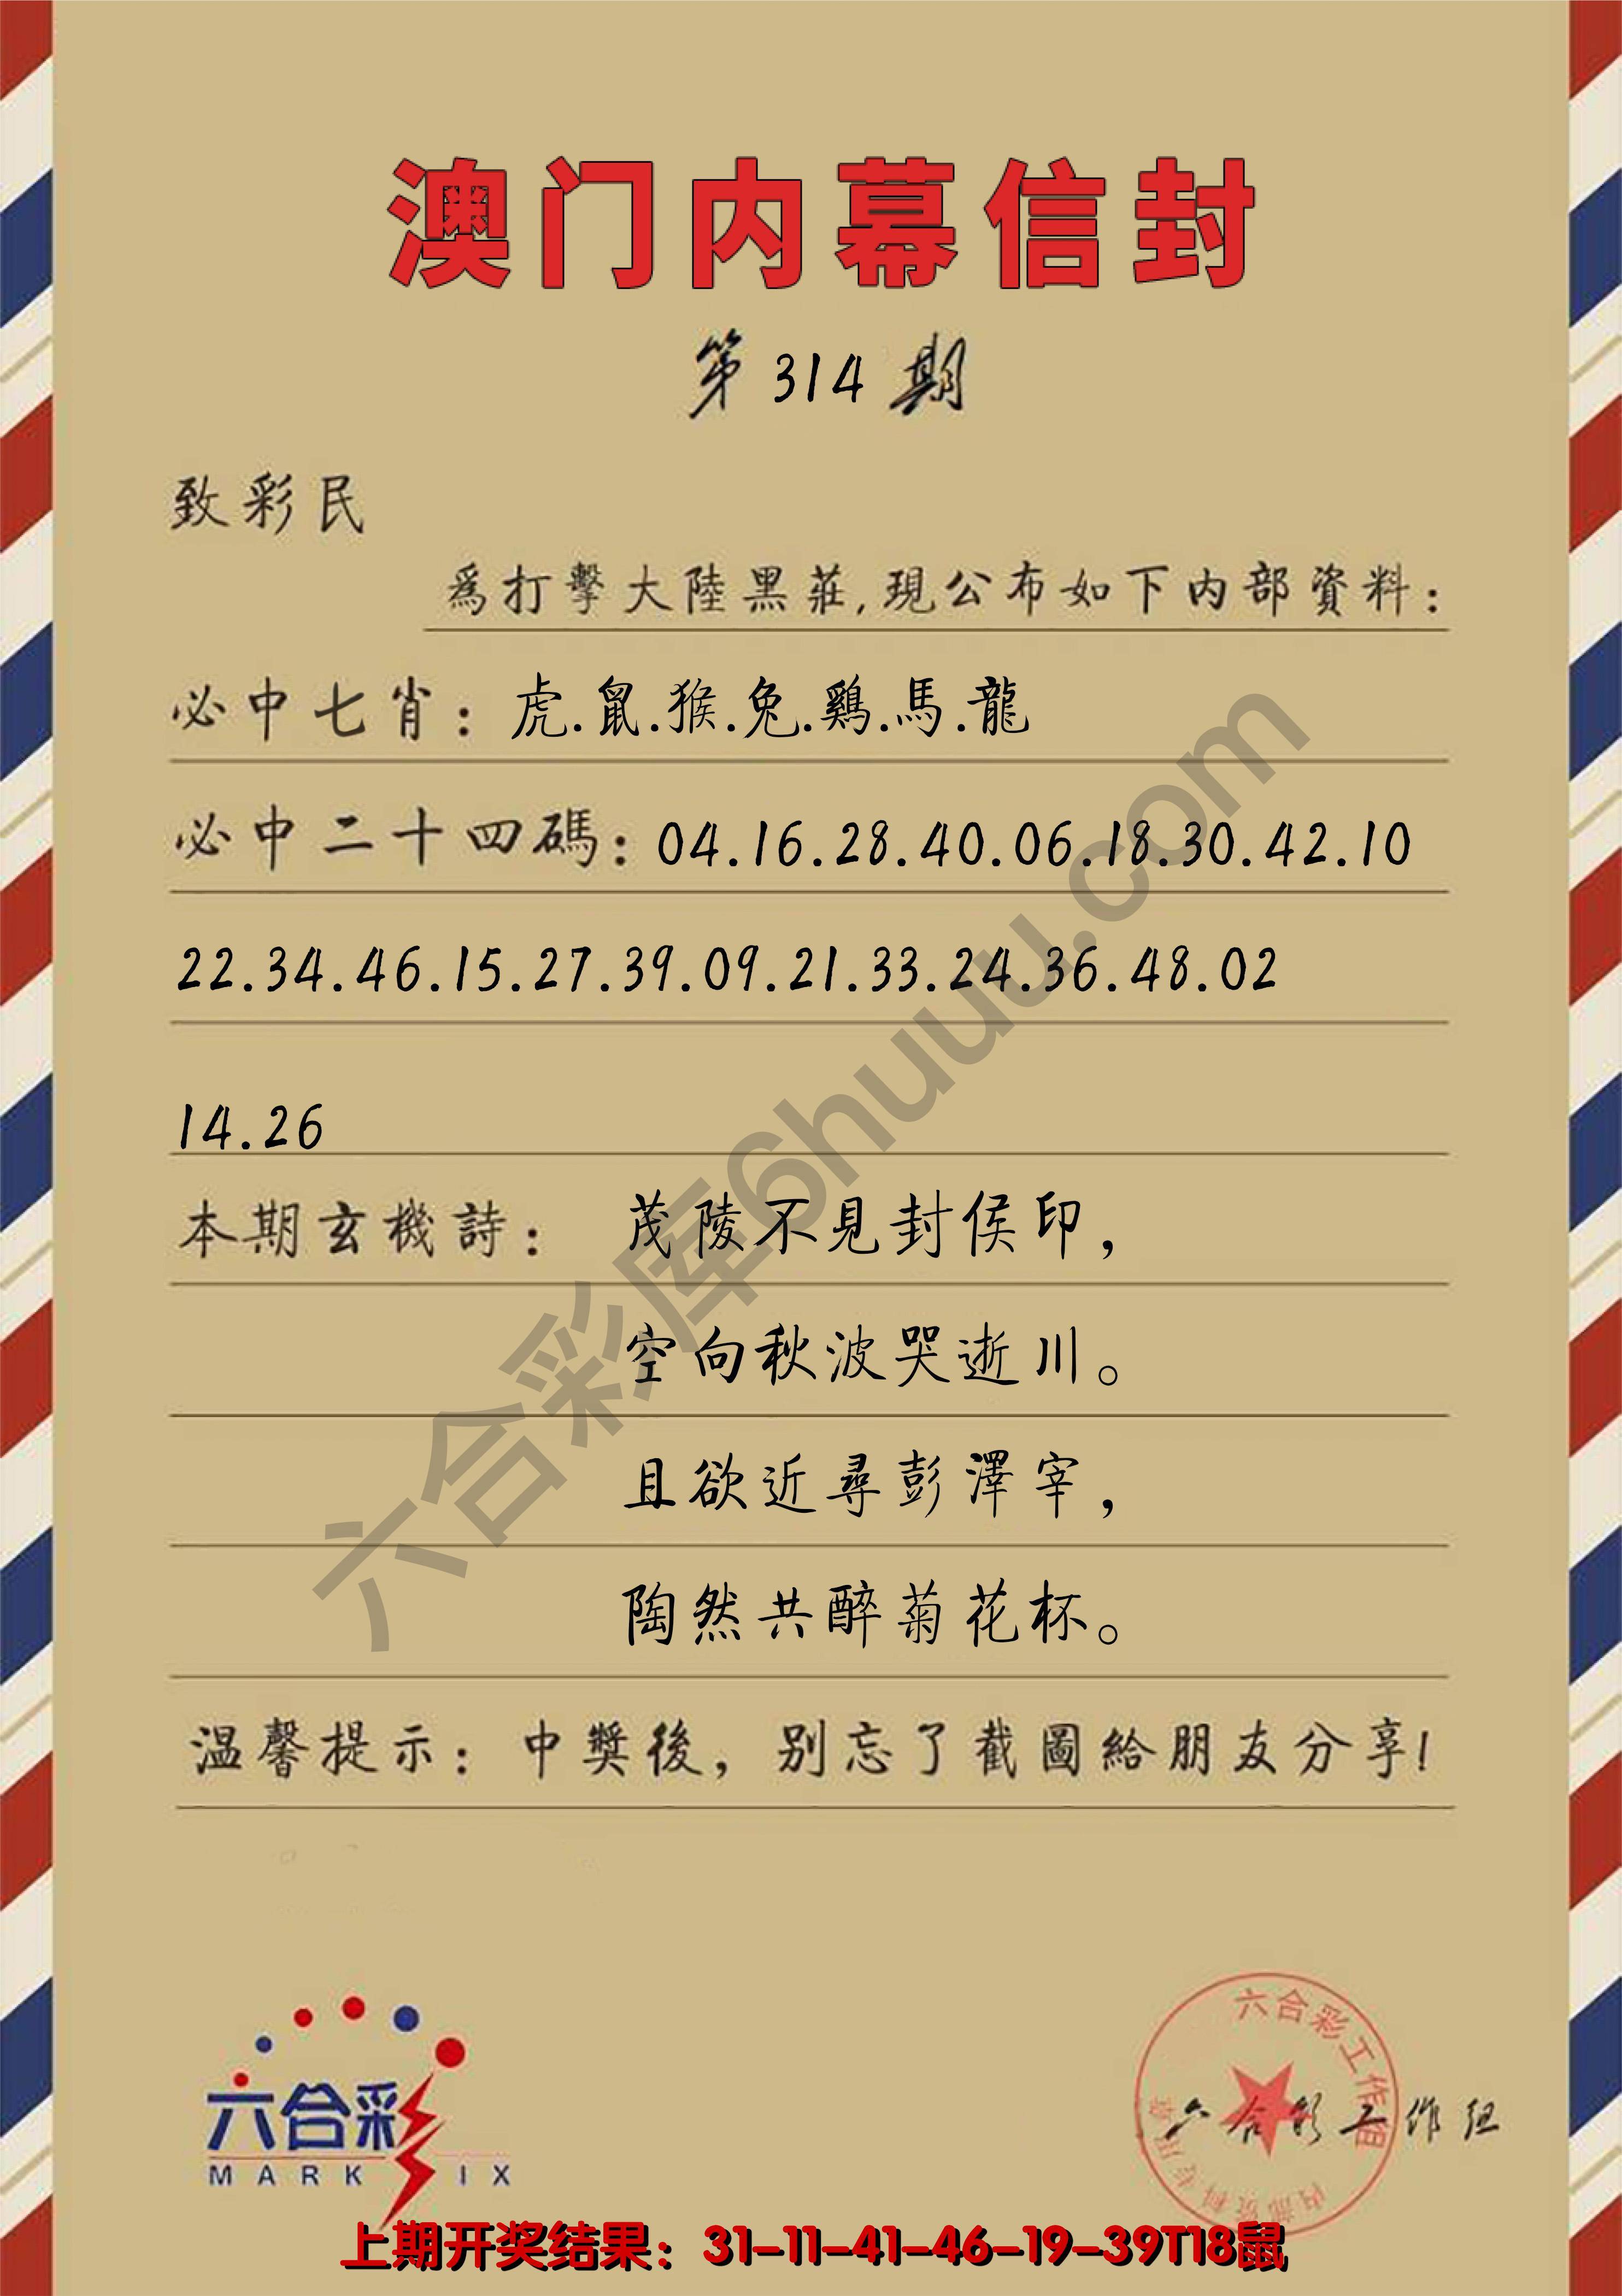 澳门内幕信封
第314期
致彩民
爲打擊大陸黑莊,現公布如下内部資料:
必中七肖: 虎.鼠.猴.兔.鷄.馬.龍
必中二十四碼: 04.16.28.40.06.18.30.42.10
22.34.46.15.27.39.09.21.33.24.36.48.02
14.26
本期玄機詩: 茂陵不見封侯印,
空向秋波哭逝川。
且欲近尋彭澤宰,
陶然共醉菊花杯。
温馨提示: 中獎後, 别忘了截圖給朋友分享!
六合彩库6huuu.com
六合彩
MARK SIX
六合彩工作组
内部资料专用章
六合彩工作组
上期开奖结果: 31-11-41-46-19-39T18鼠